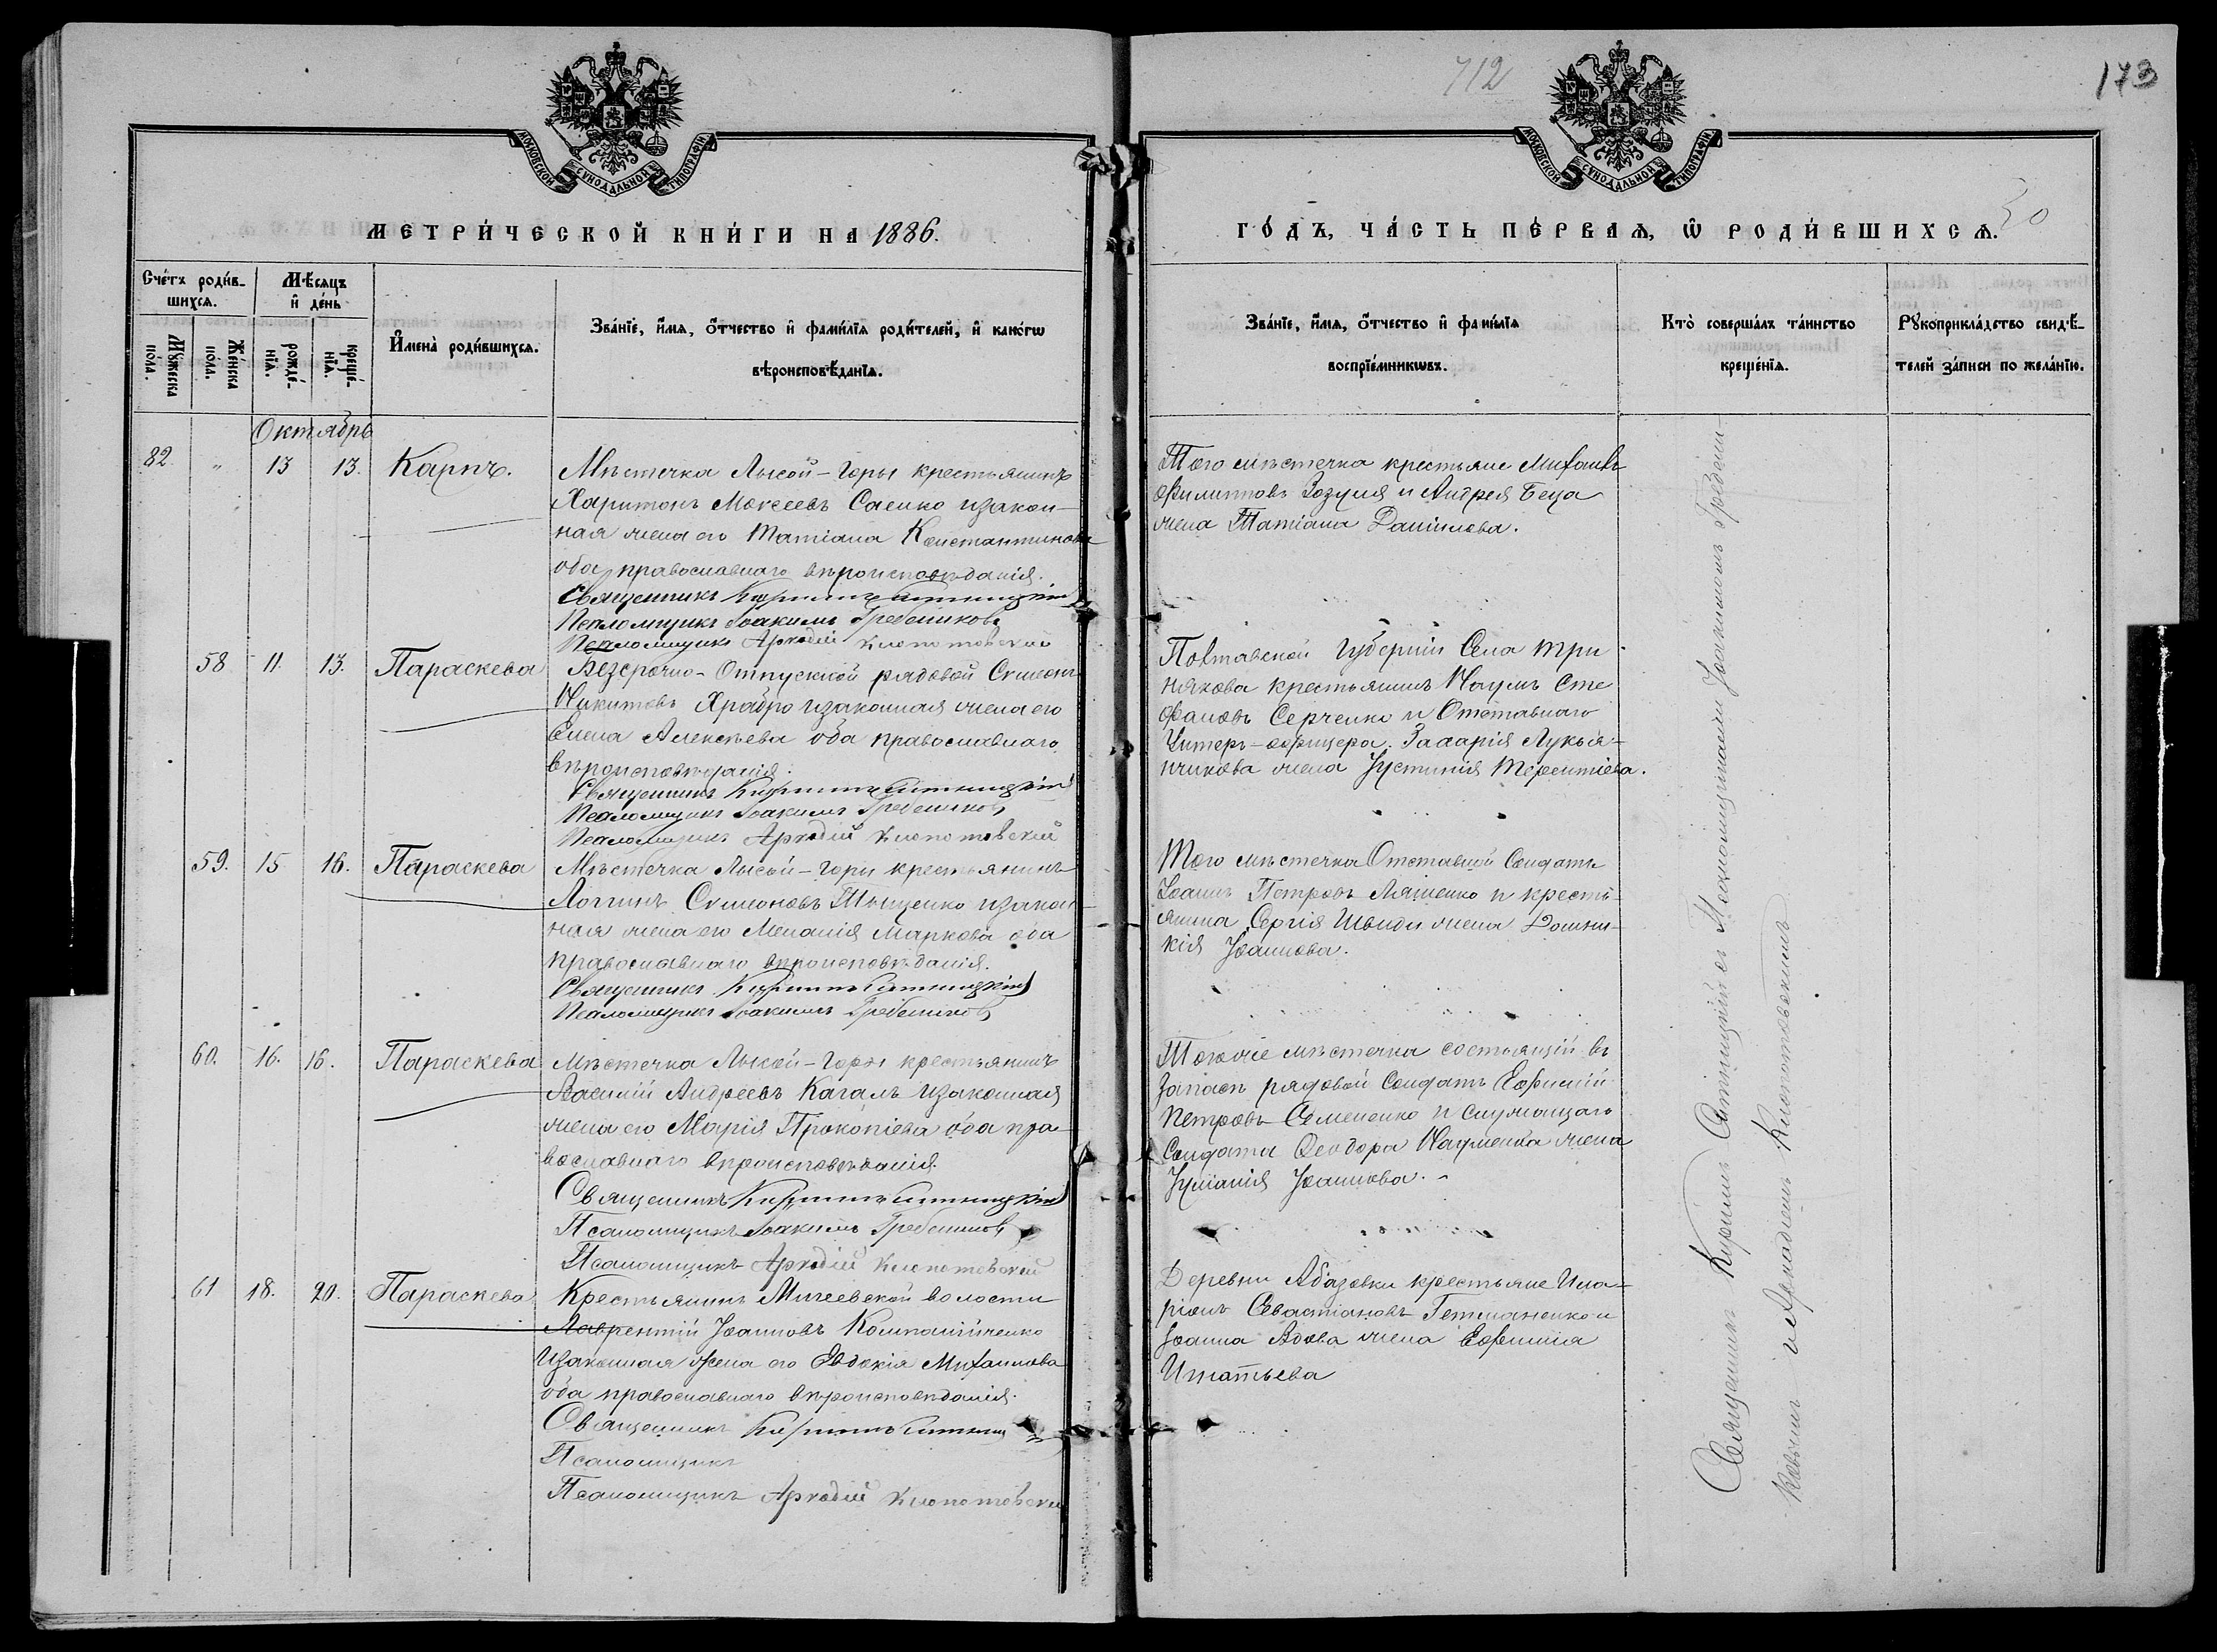 712
173
50
МОСКОВСКОЙ СѴНОДАЛЬНОЙ ТИПОГРАФІИ
МОСКОВСКОЙ СѴНОДАЛЬНОЙ ТИПОГРАФІИ
МЕТРИ́ЧЕСКОЙ КНИ́ГИ НА 1886.
ГО́ДЪ, ЧА́СТЬ ПЕ́РВАѦ, Ѡ҆ РОДИ́ВШИХСѦ.
Сче́тъ роди́в-
шихсѧ.
Мꙋ́жеска
по́ла.
Же́нска
по́ла.
Мѣ́сѧцъ
и҆ де́нь
рожде́-
нїѧ.
креще́-
нїѧ.
И҆мена̀ роди́вшихсѧ.
Зва́нїе, и҆́мѧ, ѻ҆́тчество и҆ фами́лїѧ роди́телей, и҆ како́гѡ
вѣроисповѣ́данїѧ.
Зва́нїе, и҆́мѧ, ѻ҆́тчество и҆ фами́лїѧ
воспрїе́мникѡвъ.
Кто̀ соверша́лъ та́инство
креще́нїѧ.
Рꙋкоприкла́дство свидѣ́-
телей за́писи по жела́нїю.
Октябрь
82 " 13 13. Карпъ.
Мѣстечка Лысой-Горы крестьянинъ
Харитонъ Моисеевъ Саенко и закон-
ная жена его Татіана Константинова
оба православнаго вѣроисповѣданія.
Священникъ Кириллъ Ситницкій
Псаломщикъ Іоакимъ Гребенников
Псаломщикъ Аркадій Клопотовскій
Того мѣстечка крестьяне Михаилъ
Филипповъ Зозуля и Андрея Беца
жена Татіана Даніилова.
58 11. 13. Параскева
Безсрочно-Отпускной рядовой Симеонъ
Никитовъ Храбро и законная жена его
Елена Алексѣева оба православнаго
вѣроисповѣданія.
Священникъ Кириллъ Ситницкій
Псаломщикъ Іоакимъ Гребенников
Псаломщикъ Аркадій Клопотовскій
Полтавской Губерніи Села Три-
някова крестьянинъ Наумъ Сте
фановъ Серченко и Отставнаго
Унтеръ-офицера Захарія Лукья-
нчикова жена Іустинія Терентіева.
59. 15 16. Параскева
Мѣстечка Лысой-Горы крестьянинъ
Логгинъ Симеоновъ Тыщенко и закон
ная жена его Меланія Маркова оба
православнаго вѣроисповѣданія.
Священникъ Кириллъ Ситницкій
Псаломщикъ Іоакимъ Гребенников
Того мѣстечка Отставной Солдатъ
Іоаннъ Петровъ Ляшенко и кресть-
янина Сергія Швиды жена Домни-
кія Іоаннова.
60. 16. 16. Параскева
Мѣстечка Лысой-Горы крестьянинъ
Василій Андреевъ Кагалъ и законная
жена его Марія Прокопіева оба пра-
вославнаго вѣроисповѣданія.
Священникъ Кириллъ Ситницкій
Псаломщикъ Іоакимъ Гребенников
Псаломщикъ Аркадій Клопотовскій
Того же мѣстечка состоящій въ
запасѣ рядовой Солдатъ Евфимій
Петровъ Семененко и служащаго
Солдата Ѳеодора Науменка жена
Іуліанія Іоаннова.
61 18. 20. Параскева
Крестьянинъ Мигеевской волости
Лаврентій Іоанновъ Компанійченко
и законная жена его Евдокія Михаилова
оба православнаго вѣроисповѣданія.
Священникъ Кириллъ Ситниц
Псаломщикъ
Псаломщикъ Аркадій Клопотовскій
Деревни Абазовки крестьяне Ила-
ріонъ Севастіановъ Гетманенко и
Іоанна Вдова жена Евфимія
Игнатьева
Священникъ Кириллъ Ситницкій съ Псаломщиками Іоакимомъ Гребенни-
ковымъ и Аркадіемъ Клопотовскимъ